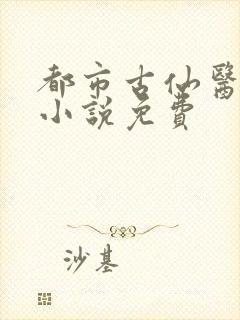 都市古仙醫
小說免費
沙基